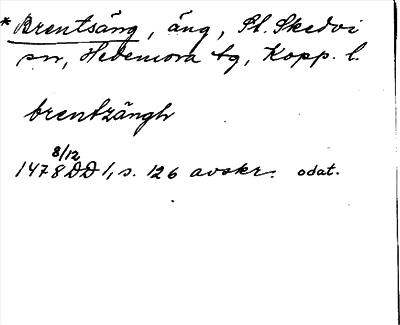 * Brentsäng, äng, St. Skedvi
sn, Hedemora tg, Kopp. l.
brentzängh
1478 8/12 DD 1, s. 126 avskr. odat.